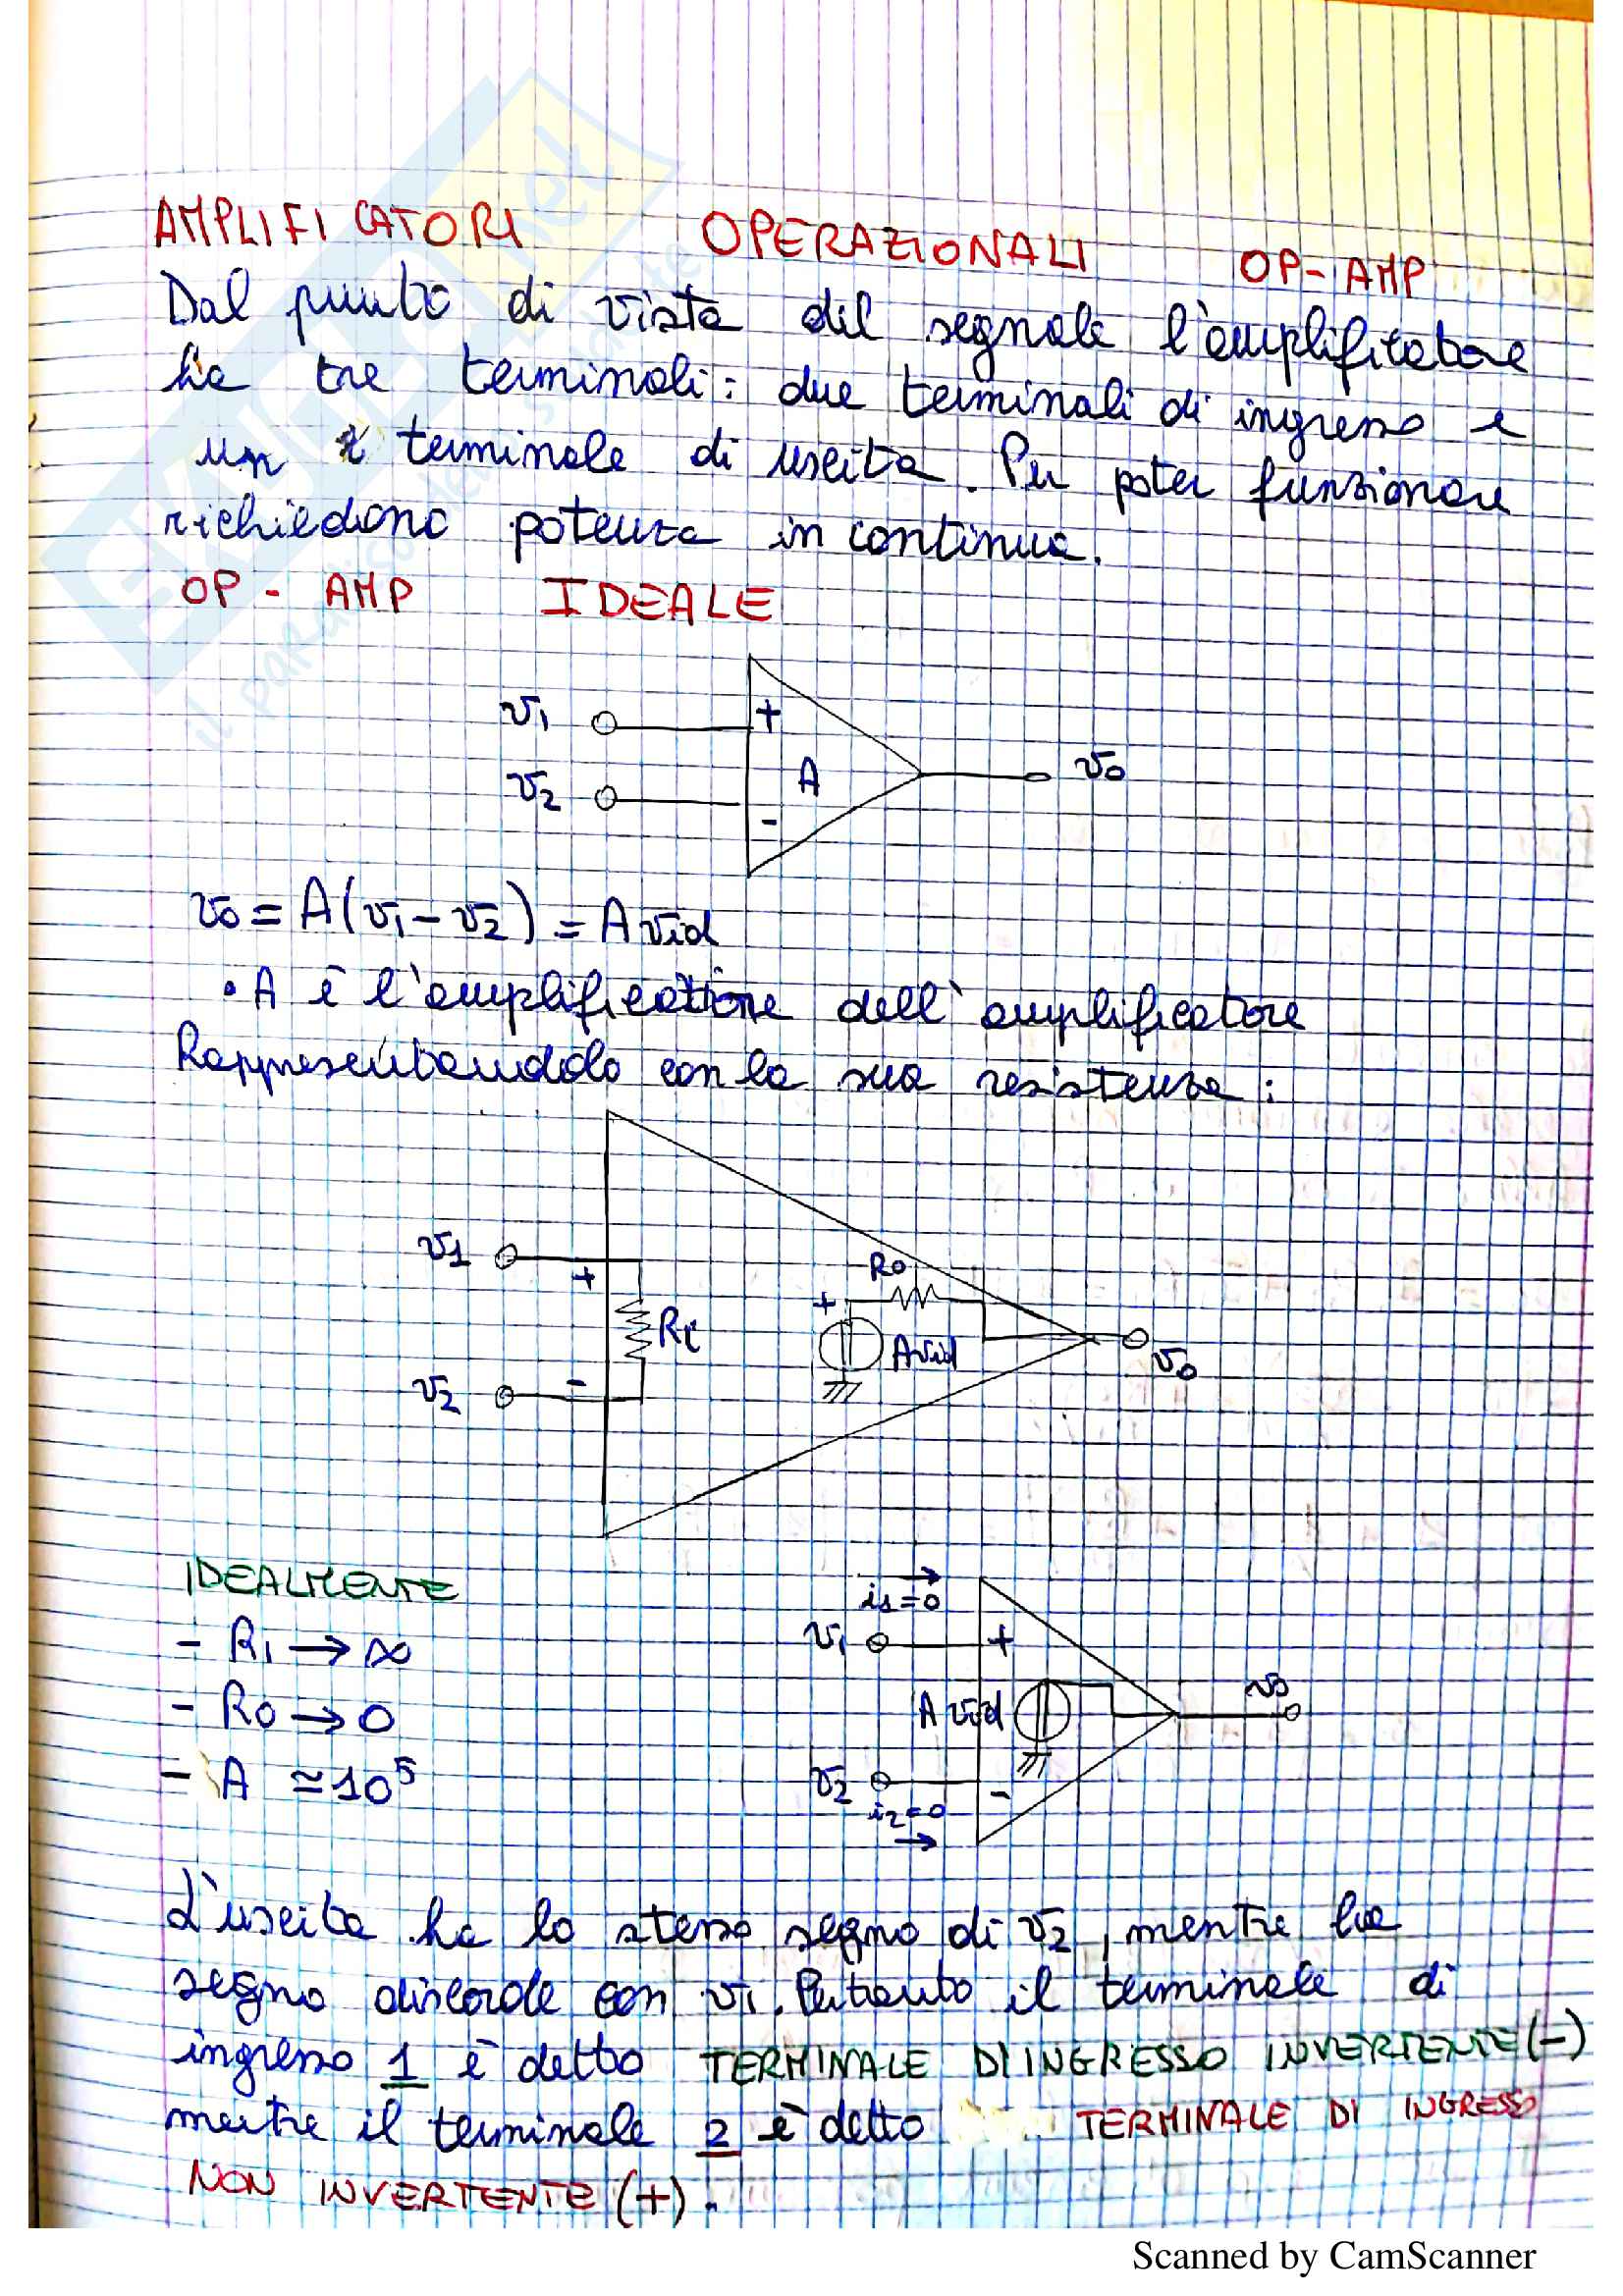 AMPLIFICATORI OPERAZIONALI OP-AMP
Dal punto di vista del segnale l'amplificatore
ha tre terminali: due terminali di ingresso e
un terminale di uscita. Per poter funzionare
richiedono potenza in continua.
OP - AMP IDEALE
v1 +
A vo
v2 -
vo = A(v1 - v2) = A vid
• A è l'amplificazione dell'amplificatore
Rappresentandolo con la sua resistenza:
v1 + Ro
Ri + Avid vo
v2 -
IDEALMENTE
- R1 → ∞
- Ro → 0
- A ≃ 10⁵
i1=0
v1 +
A vid vo
v2 -
i2=0
L'uscita ha lo stesso segno di v2, mentre ha
segno discorde con v1. Pertanto il terminale di
ingresso 1 è detto TERMINALE DI INGRESSO INVERTENTE (-)
mentre il terminale 2 è detto TERMINALE DI INGRESSO
NON INVERTENTE (+).
SKUOLA.net
il paradiso dello studente
Scanned by CamScanner